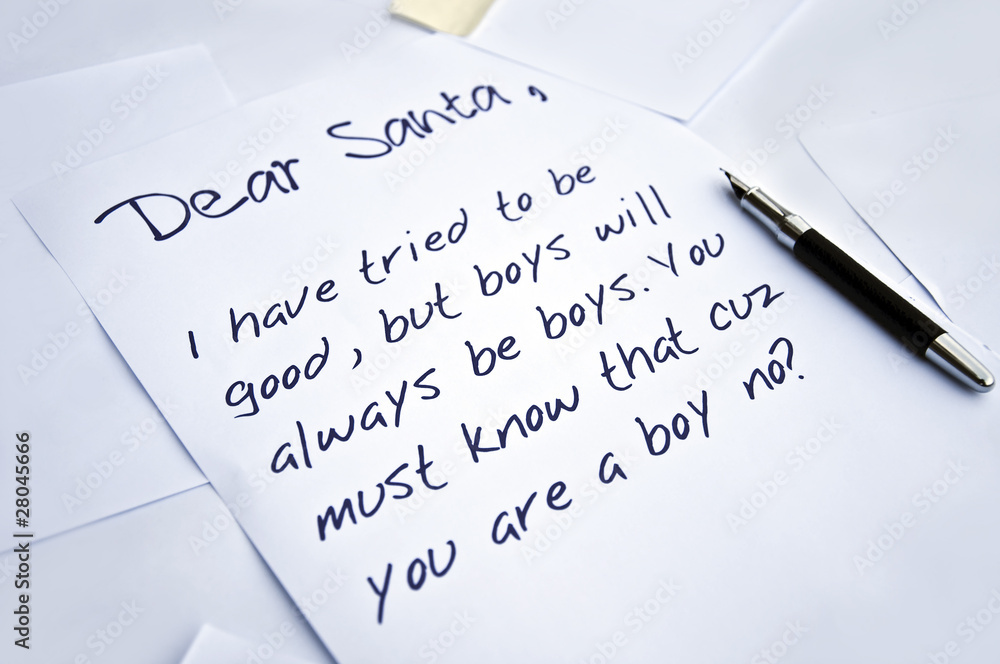 Dear Santa,
I have tried to be
good, but boys will
always be boys. You
must know that cuz
you are a boy no?
Adobe Stock | #28045666